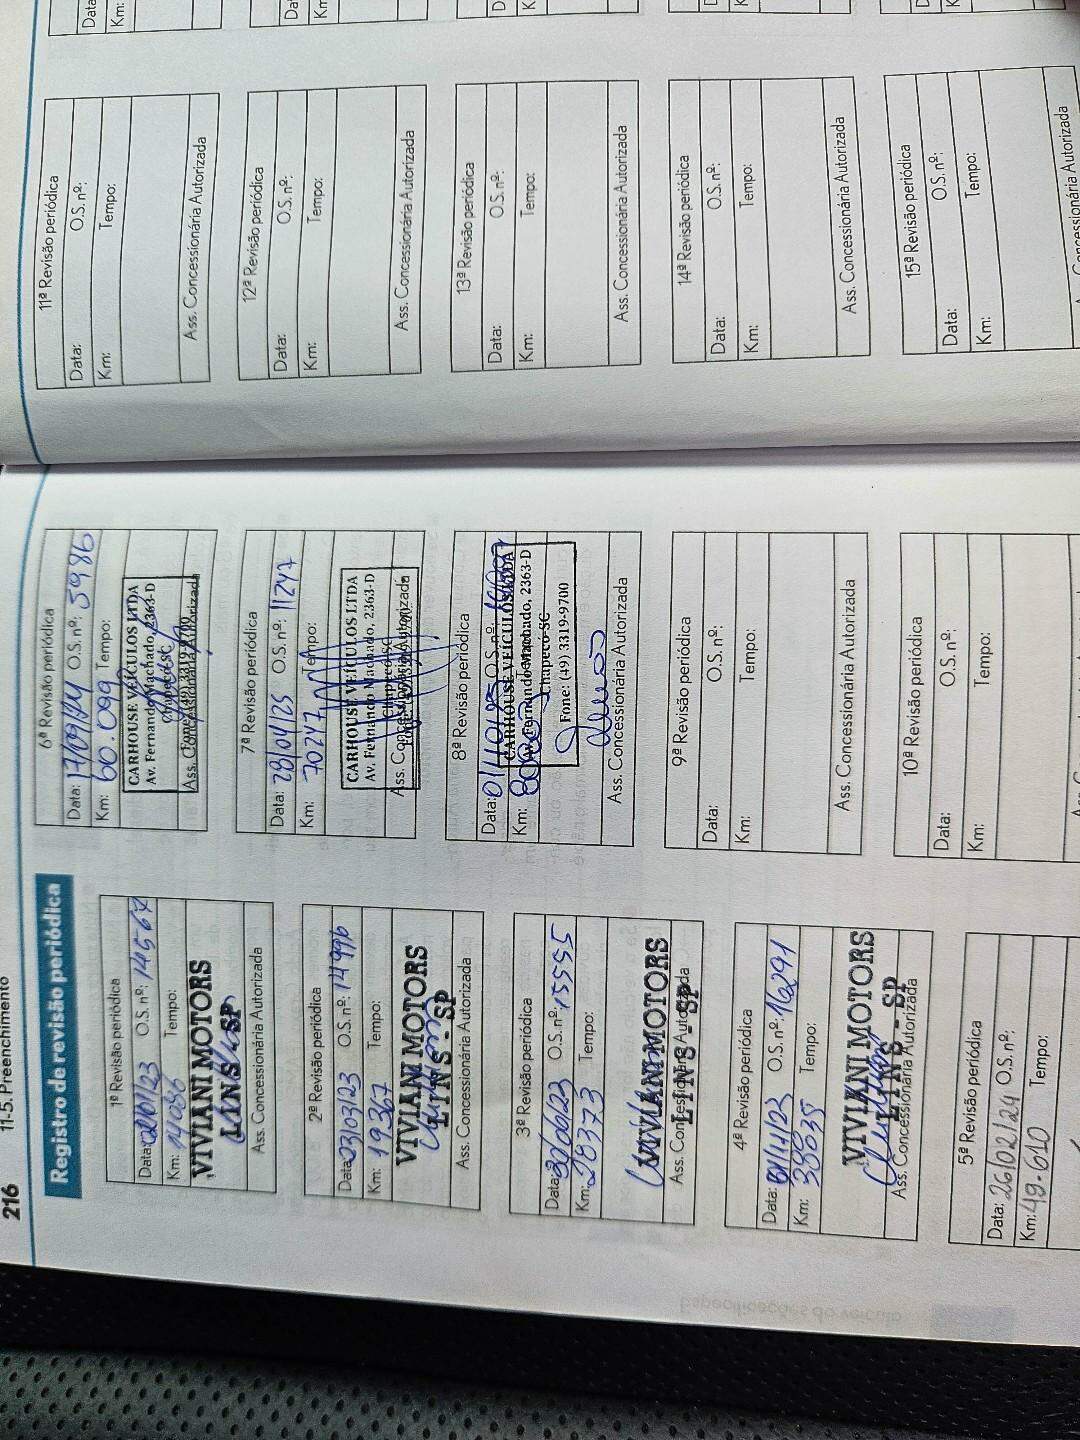 216
11-5. Preenchimento
Registro de revisão periódica
1ª Revisão periódica
Data: O.S. nº: 14567
Km: 14086 Tempo:
VIVIANI MOTORS
LINS - SP
Ass. Concessionária Autorizada
2ª Revisão periódica
Data: 03/03/23 O.S. nº: 14996
Km: 19367 Tempo:
VIVIANI MOTORS
LINS - SP
Ass. Concessionária Autorizada
3ª Revisão periódica
Data: O.S. nº: 15555
Km: 28373 Tempo:
VIVIANI MOTORS
LINS - SP
Ass. Concessionária Autorizada
4ª Revisão periódica
Data: 01/11/23 O.S. nº: 16291
Km: Tempo:
VIVIANI MOTORS
LINS - SP
Ass. Concessionária Autorizada
5ª Revisão periódica
Data: 26/02/24 O.S. nº:
Km: 49.610 Tempo:
6ª Revisão periódica
Data: 17/09/24 O.S. nº: 5986
Km: 60.099 Tempo:
CARHOUSE VEÍCULOS LTDA
Av. Fernando Machado, 2363-D
Chapecó-SC
Fone: (49) 3319-9700
Ass. Concessionária Autorizada
7ª Revisão periódica
Data: 28/04/25 O.S. nº: 11247
Km: 70247 Tempo:
CARHOUSE VEÍCULOS LTDA
Av. Fernando Machado, 2363-D
Chapecó-SC
Ass. Concessionária Autorizada
8ª Revisão periódica
Data: O.S. nº:
CARHOUSE VEÍCULOS LTDA
Km:
Av. Fernando Machado, 2363-D
Chapecó-SC
Fone: (49) 3319-9700
Ass. Concessionária Autorizada
9ª Revisão periódica
Data: O.S. nº:
Km: Tempo:
Ass. Concessionária Autorizada
10ª Revisão periódica
Data: O.S. nº:
Km: Tempo:
11ª Revisão periódica
Data: O.S. nº:
Km: Tempo:
Ass. Concessionária Autorizada
12ª Revisão periódica
Data: O.S. nº:
Km: Tempo:
Ass. Concessionária Autorizada
13ª Revisão periódica
Data: O.S. nº:
Km: Tempo:
Ass. Concessionária Autorizada
14ª Revisão periódica
Data: O.S. nº:
Km: Tempo:
Ass. Concessionária Autorizada
15ª Revisão periódica
Data: O.S. nº:
Km: Tempo:
Concessionária Autorizada
Data
Km: